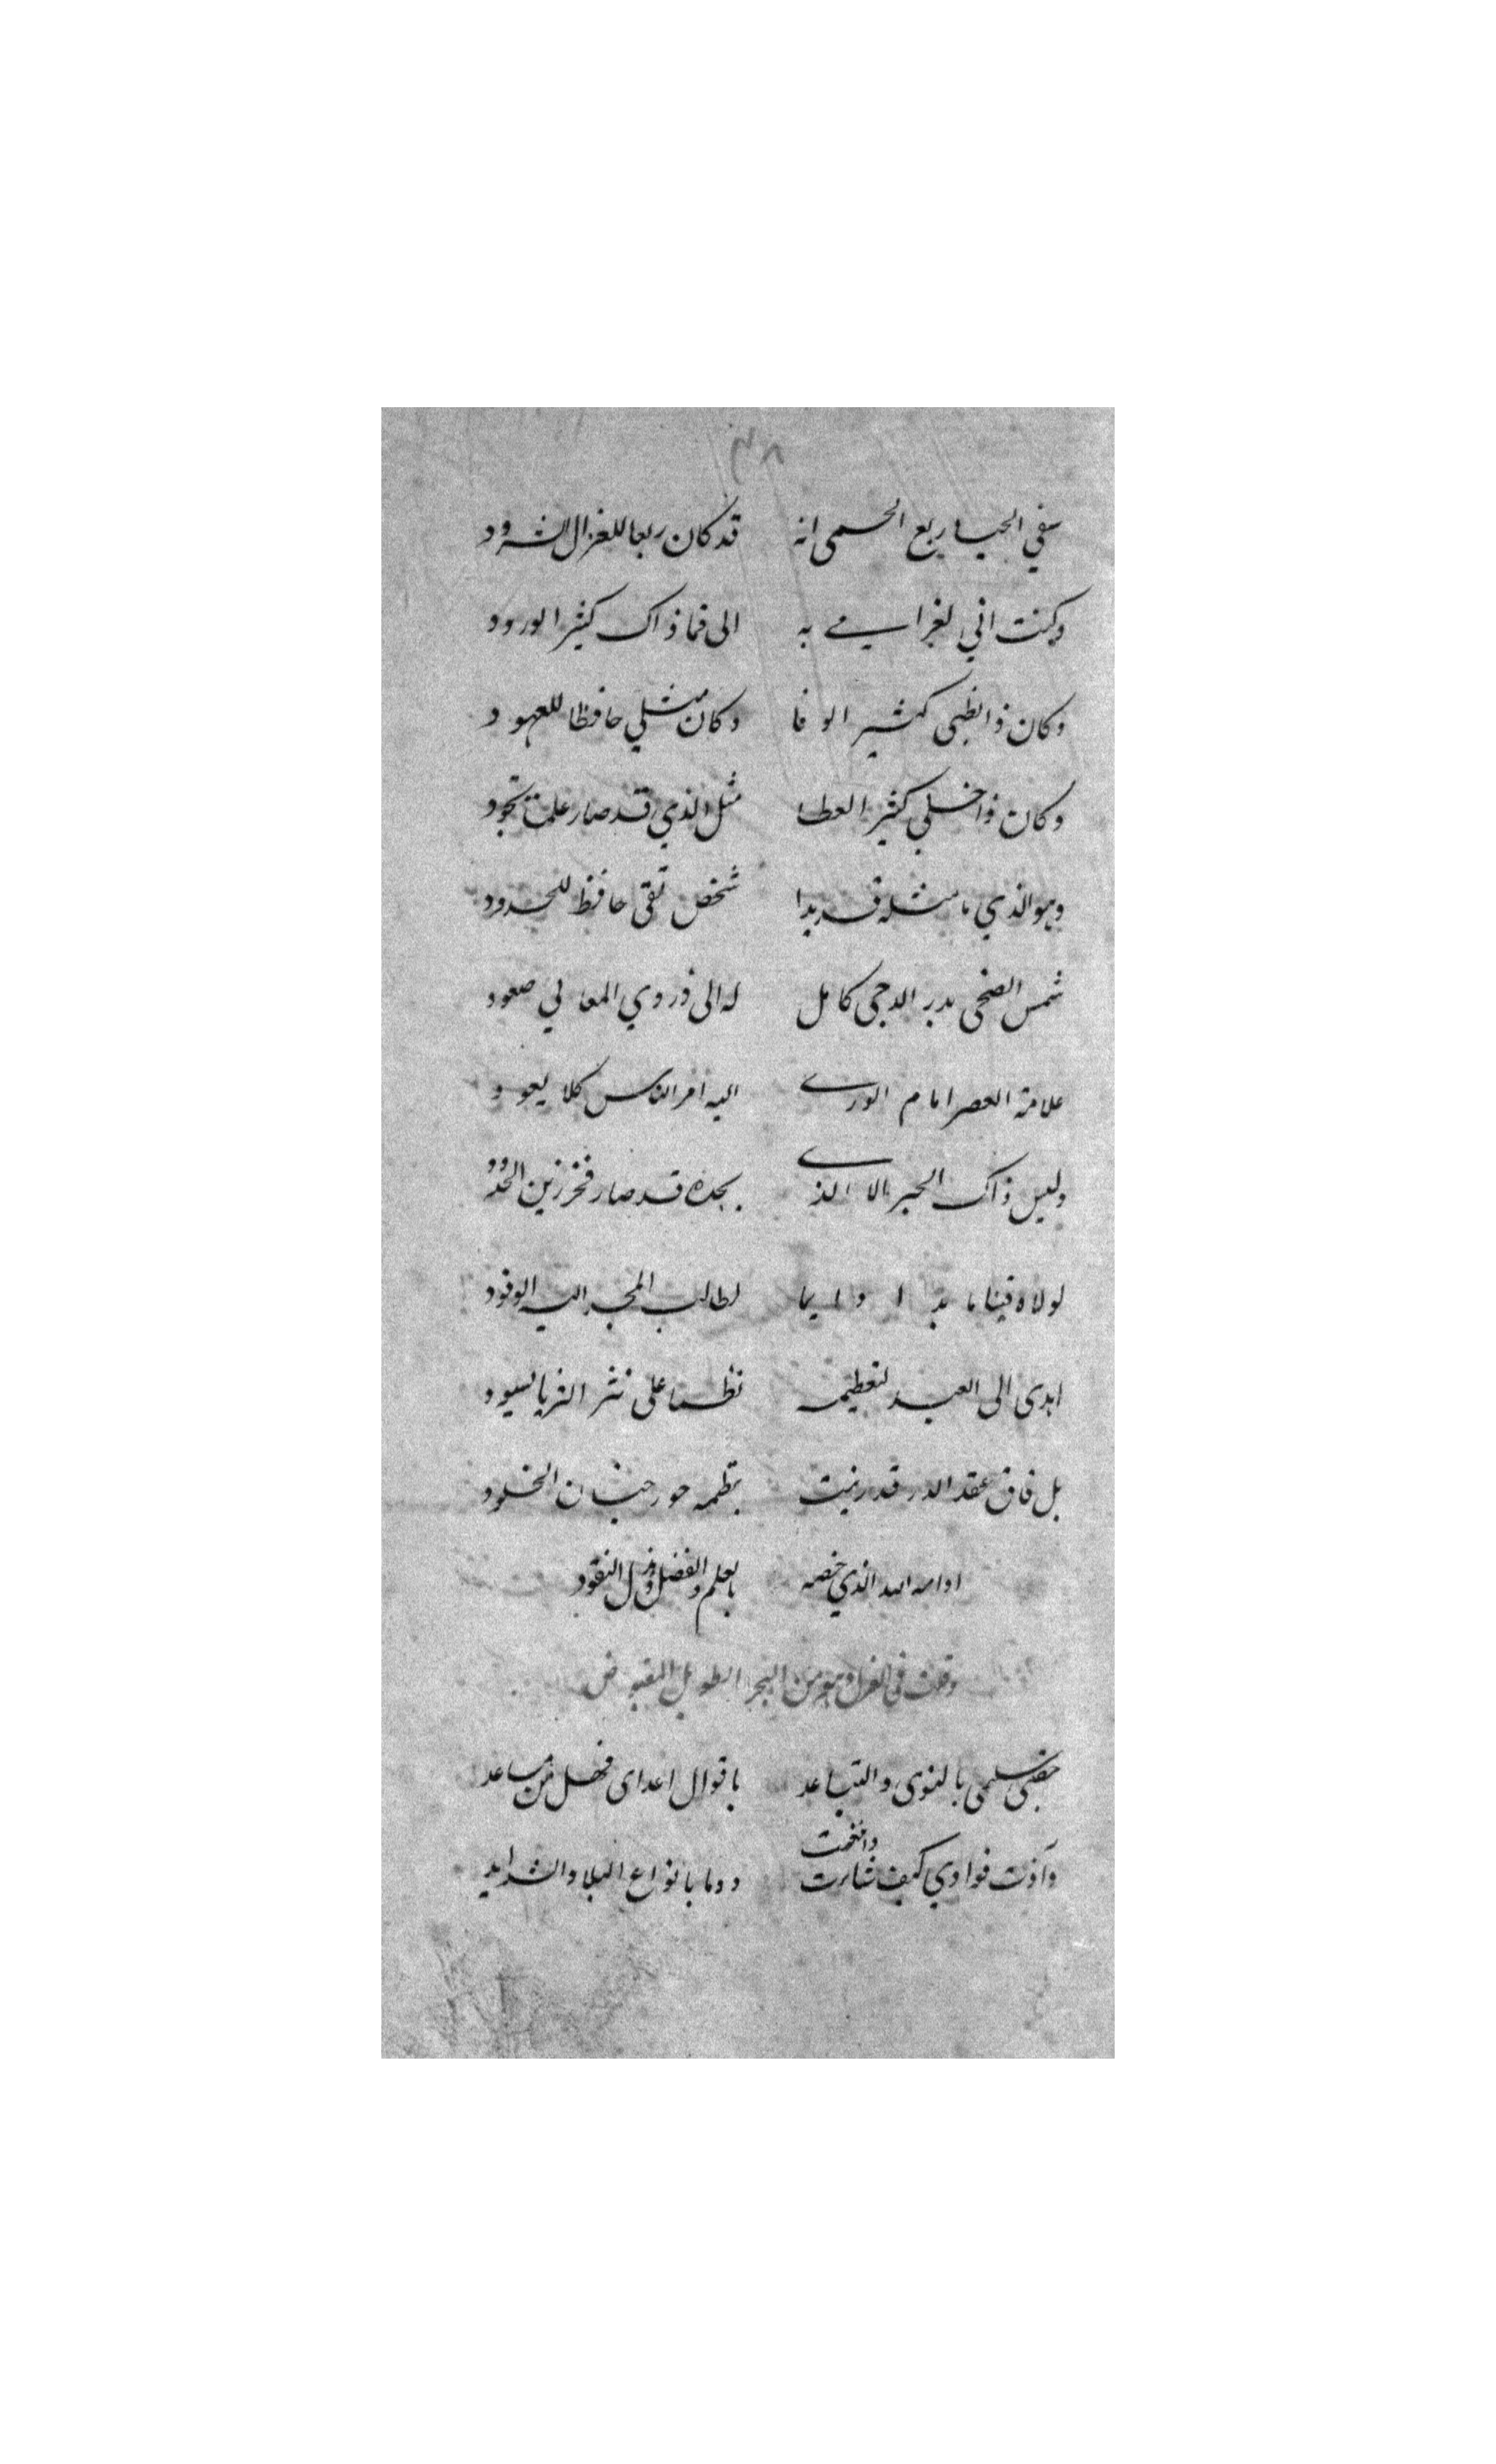 ٣٨
سقي الحيا ربع الحمى انه قد كان ربعا للغزال الشرود
وكنت اني لغرامي به الى فما ذاك كثير الورود
وكان ذا الظبى كثير الوفا وكان مثلي حافظا للعهود
وكان ذا خلي كثير العطا مثل الذي قد صار علمت بجود
وهو الذي ما مثله قد بدا شخص تقى حافظ للحدود
شمس الضحى بدر الدجى كامل له الى ذروي المعالي صعود
علامة العصر امام الورے اليه امر الناس كلا يعود
وليس ذاك الحبر الا الذے بجده قد صار فخر زين
لولاه فينا ما بدا دايما لطالب المجد اليه الوفود
اهدى الى العبد لتعظيمه نظما على نثر الثريا يسود
بل فاق عقد الدر قد زينت بنظمه حور جنان الخلود
ادامه الله الذي خصه بالعلم والفضل النقود
وقلت في الغزل وهو من البحر الطويل المقبوض
جفتني سلمى بالنوى والتباعد باقوال اعداى فهل من مساعد
وآذت فوادي كيف شارت ودما بانواع البلا والشدايد